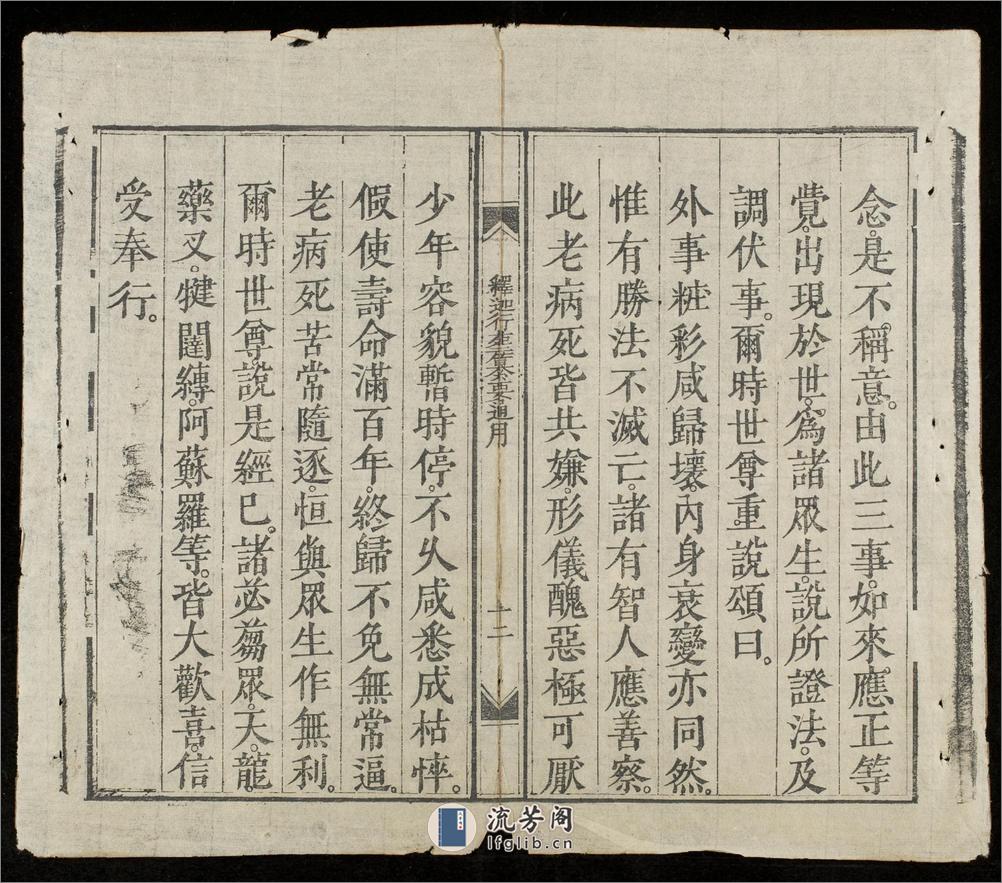 念。是不稱意。由此三事。如來。應正等
覺。出現於世。爲諸眾生。說所證法。及
調伏事。爾時世尊。重說頌曰。
外事粧彩咸歸壞。內身衰變亦同然。
惟有勝法不滅亡。諸有智人應善察。
此老病死皆共嫌。形儀醜惡極可厭
釋迦行
通用
十二
少年容貌暫時停。不久咸悉成枯悴。
假使壽命滿百年。終歸不免無常逼。
老病死苦常隨逐。恒與眾生作無利。
爾時世尊。說是經已。諸苾蒭眾。天。龍。
藥叉。犍闥縛。阿蘇羅等。皆大歡喜。信
受奉行。
流芳阁
lfglib.cn